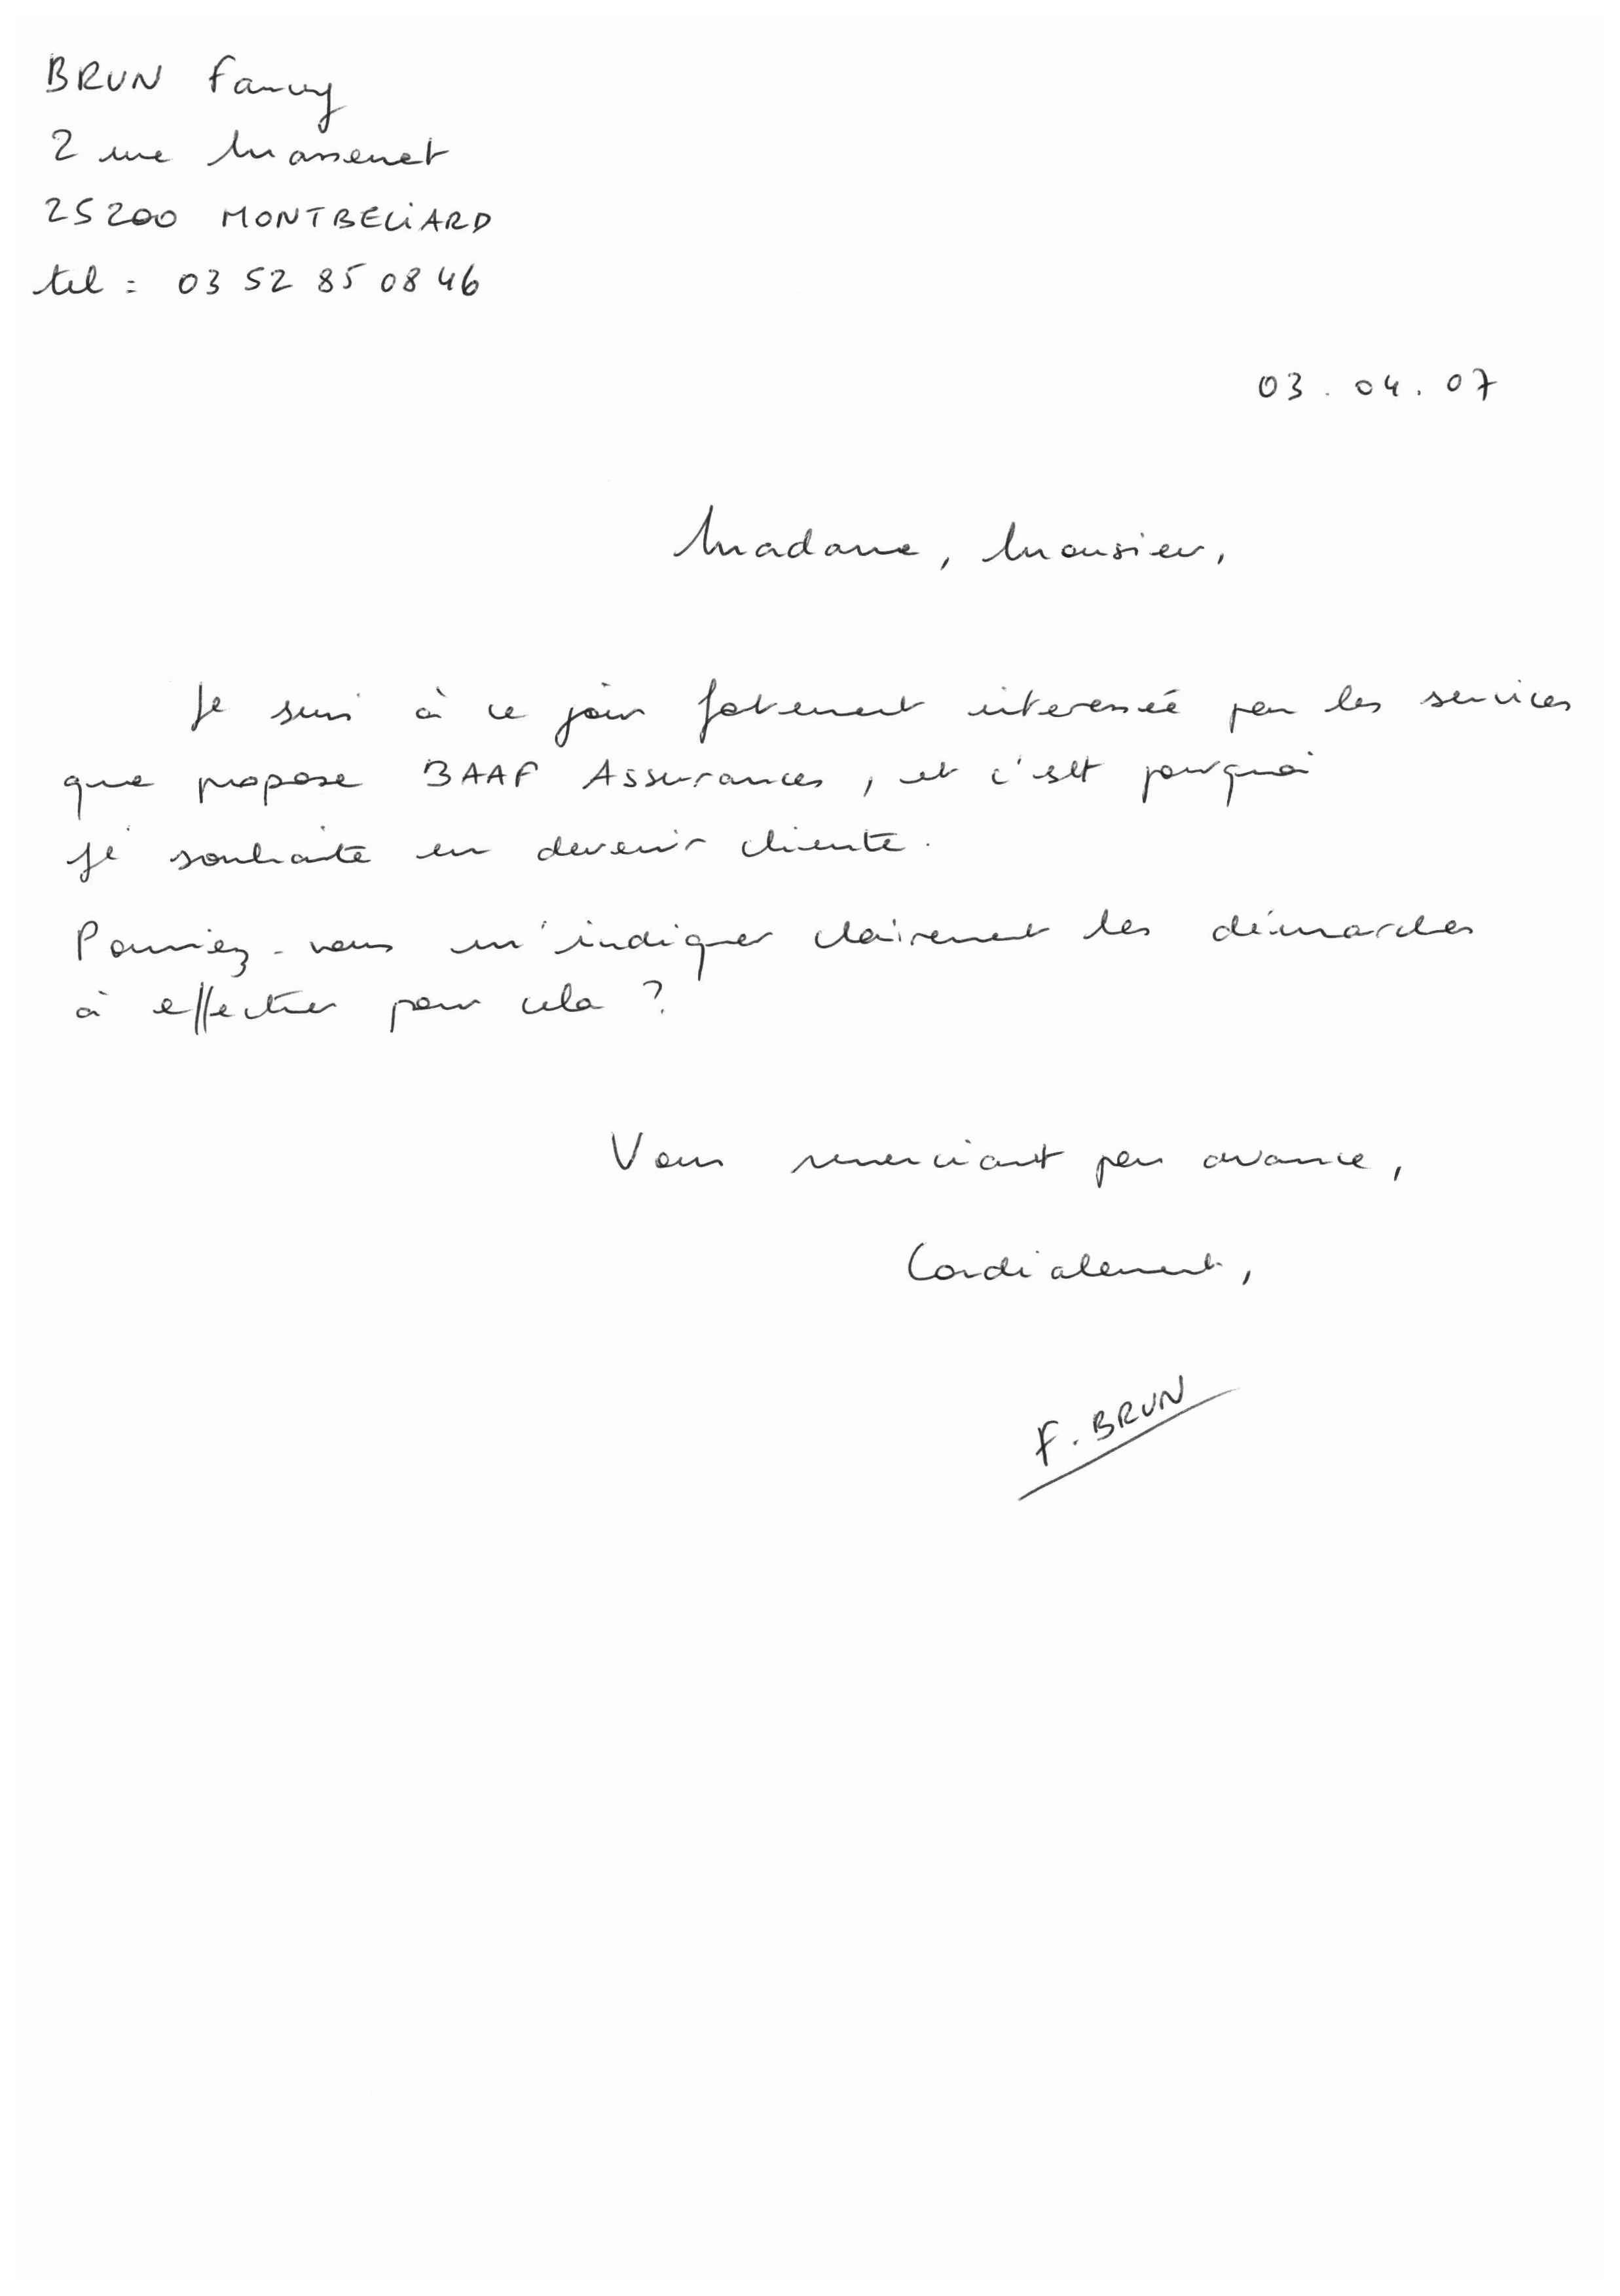 BRUN Fanny
2 rue Massenet
25200 MONTBELIARD
tel : 03 52 85 08 46
03.04.07
Madame, Monsieur,
Je suis à ce jour fortement interessée par les services
que propose BAAF Assurances, et c'est pourquoi
je souhaite en devenir cliente.
Pourriez-vous m'indiquer clairement les démarches
à effectuer pour cela ?
Vous remerciant par avance,
Cordialement,
F. BRUN